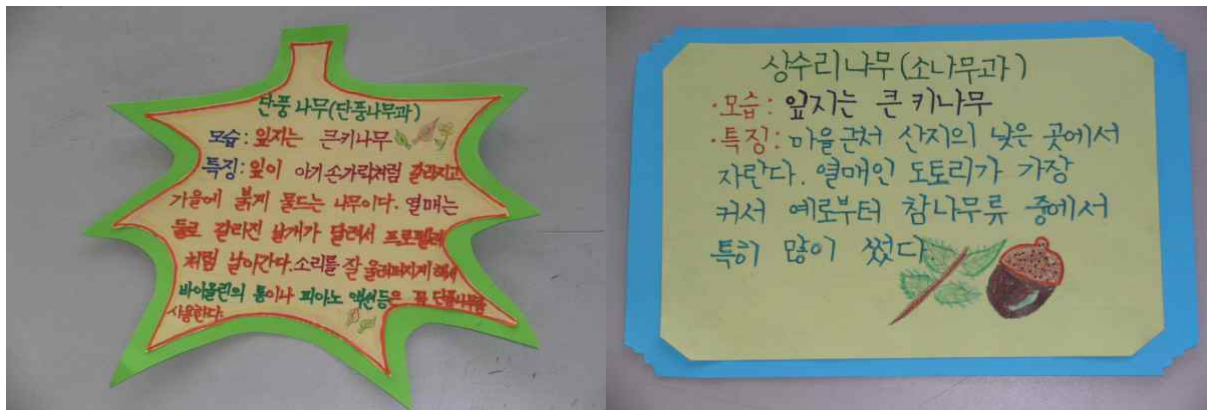 단풍 나무(단풍나무과)
모습: 잎지는 큰키나무
특징: 잎이 아기 손가락처럼 갈라지고
가을에 붉게 물드는 나무이다. 열매는
둘로 갈라진 날개가 달려서 프로펠러
처럼 날아간다. 소리를 잘 울려퍼지게 해서
바이올린의 통이나 피아노 액션등은 꼭 단풍나무를
사용한다.
상수리나무(소나무과)
·모습: 잎지는 큰 키나무
·특징: 마을근처 산지의 낮은 곳에서
자란다. 열매인 도토리가 가장
커서 예로부터 참나무류 중에서
특히 많이 썼다